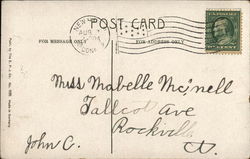 POST CARD
NEW
AUG
CONN.
FOR MESSAGE ONLY
FOR ADDRESS ONLY
Miss Mabelle McNell
Tallcot Ave
Rockville
Ct.
John C.